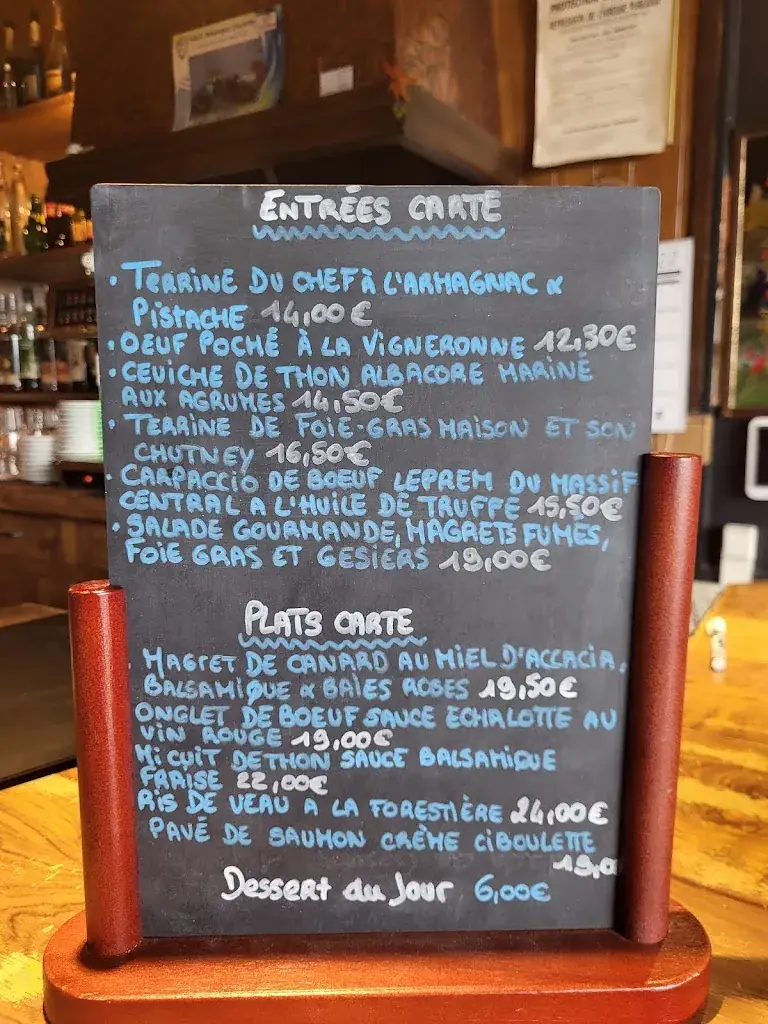 ENTRÉES CARTE
• TERRINE DU CHEF À L'ARMAGNAC &
PISTACHE 14,00€
• OEUF POCHÉ À LA VIGNERONNE 12,30€
• CEVICHE DE THON ALBACORE MARINÉ
AUX AGRUMES 14,50€
• TERRINE DE FOIE-GRAS MAISON ET SON
CHUTNEY 16,50€
• CARPACCIO DE BOEUF LEPREM DU MASSIF
CENTRAL A L'HUILE DE TRUFFE 15,50€
• SALADE GOURMANDE, MAGRETS FUMES,
FOIE GRAS ET GESIERS 19,00€
PLATS CARTE
MAGRET DE CANARD AU MIEL D'ACCACIA,
BALSAMIQUE & BAIES ROSES 19,50€
ONGLET DE BOEUF SAUCE ECHALOTTE AU
VIN ROUGE 19,00€
MI CUIT DE THON SAUCE BALSAMIQUE
FRAISE 22,00€
RIS DE VEAU A LA FORESTIÈRE 24,00€
PAVÉ DE SAUMON CRÈME CIBOULETTE
19,0
Dessert du Jour 6,00€